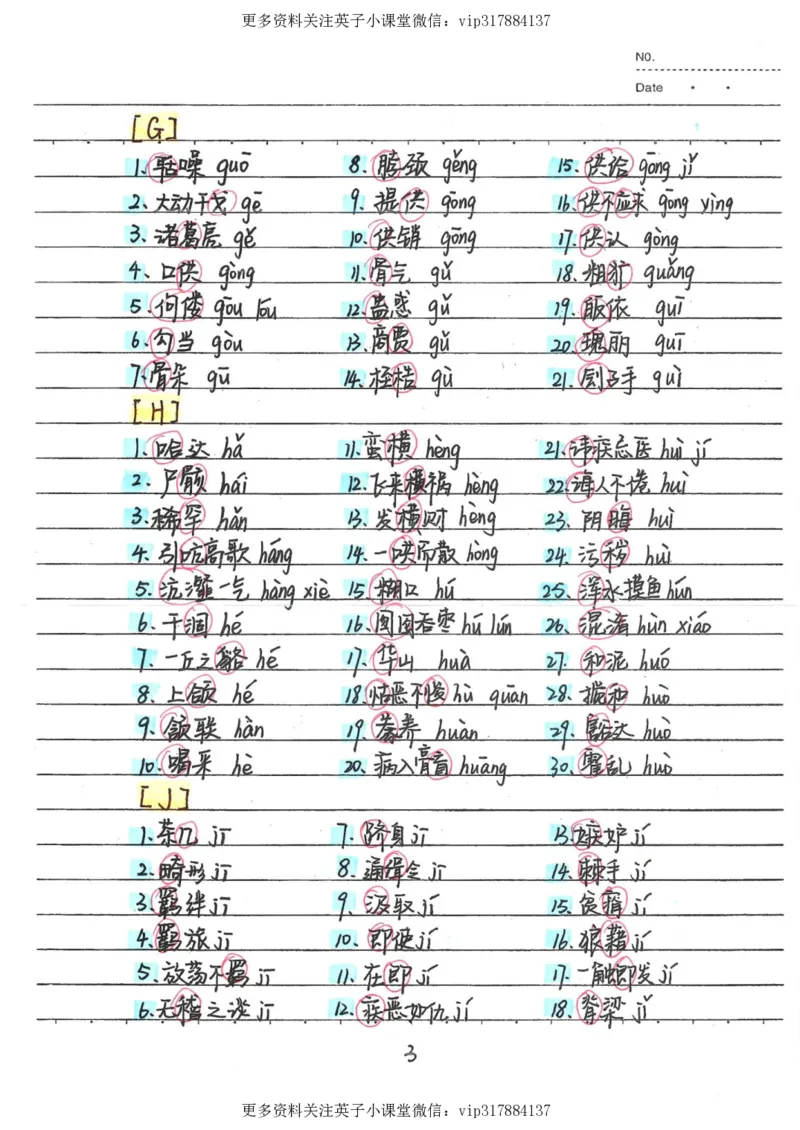 更多资料关注英子小课堂微信：vip317884137
NO.
Date
[G]
1、聒噪 guō 8、脖颈 gěng 15、供给 gōng jǐ
2、大动干戈 gē 9、提供 gōng 16、供不应求 gōng yìng
3、诸葛亮 gě 10、供销 gōng 17、供认 gòng
4、口供 gòng 11、骨气 gǔ 18、粗犷 guǎng
5、佝偻 gōu lóu 12、蛊惑 gǔ 19、皈依 guī
6、勾当 gòu 13、商贾 gǔ 20、瑰丽 guī
7、骨朵 gū 14、桎梏 gù 21、刽子手 guì
[H]
1、哈达 hǎ 11、蛮横 hèng 21、讳疾忌医 huì jí
2、尸骸 hái 12、飞来横祸 hèng 22、诲人不倦 huì
3、稀罕 hǎn 13、发横财 hèng 23、阴晦 huì
4、引吭高歌 háng 14、一哄而散 hòng 24、污秽 huì
5、沆瀣一气 hàng xiè 15、糊口 hú 25、浑水摸鱼 hún
6、干涸 hé 16、囫囵吞枣 hú lún 26、混淆 hùn xiáo
7、一丘之貉 hé 17、华山 huà 27、和泥 huó
8、上颌 hé 18、怙恶不悛 hù quān 28、搅和 huò
9、颔联 hàn 19、豢养 huàn 29、豁达 huò
10、喝采 hè 20、病入膏肓 huāng 30、霍乱 huò
[J]
1、茶几 jī 7、跻身 jī 13、嫉妒 jí
2、畸形 jī 8、通缉令 jī 14、棘手 jí
3、羁绊 jī 9、汲取 jí 15、贫瘠 jí
4、羁旅 jī 10、即使 jí 16、狼藉 jí
5、放荡不羁 jī 11、在即 jí 17、一触即发 jí
6、无稽之谈 jī 12、疾恶如仇 jí 18、脊梁 jǐ
3
更多资料关注英子小课堂微信：vip317884137